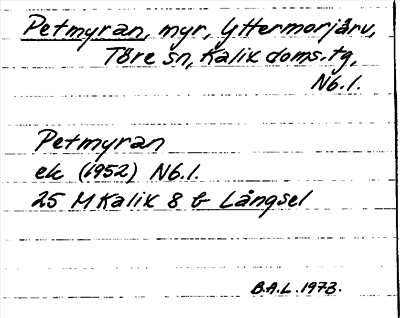 Petmyran, myr, Yttermorjärv,
Töre sn, Kalix doms.tg,
Nb.l.
Petmyran
ek (1952) Nb.l.
25 M Kalix 8 b Långsel
B.A.L. 1973.